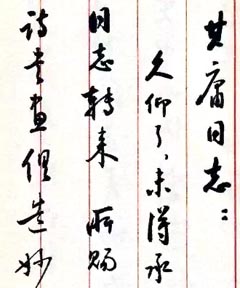 其庸同志：
久仰了，未得承
同志转来 所赐
诗书画俱造妙